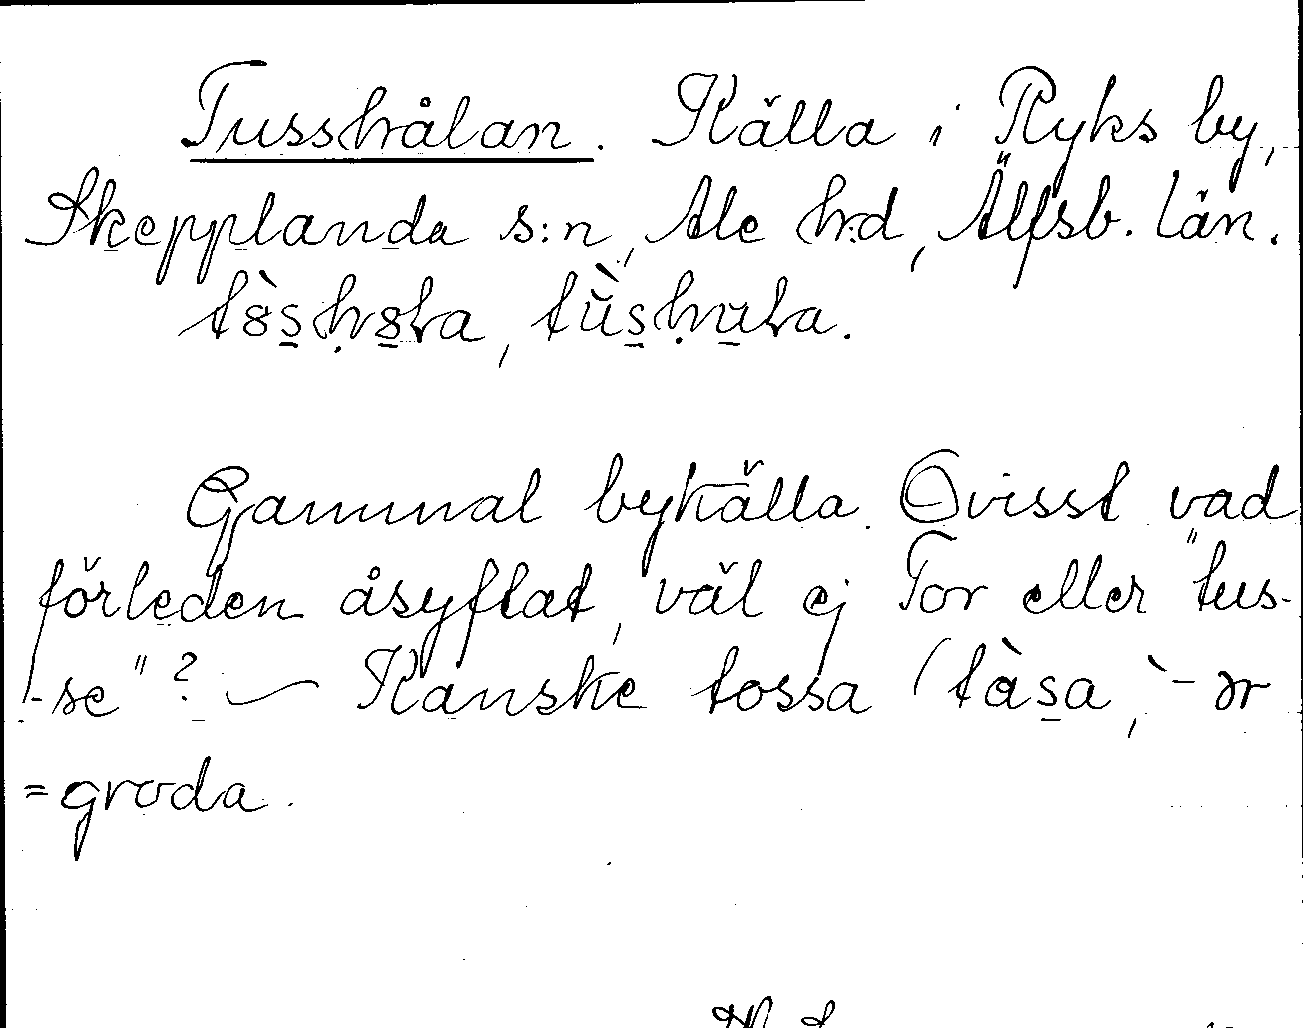 Tusshålan. Källa i Ryks by,
Skepplanda s:n, Ale h:d, Älfsb. län.
Gammal bykälla. Ovisst vad
förleden åsyftat, väl ej Tor eller "tus-
-se"? — Kanske tossa (tàsa, `-ər
=groda.